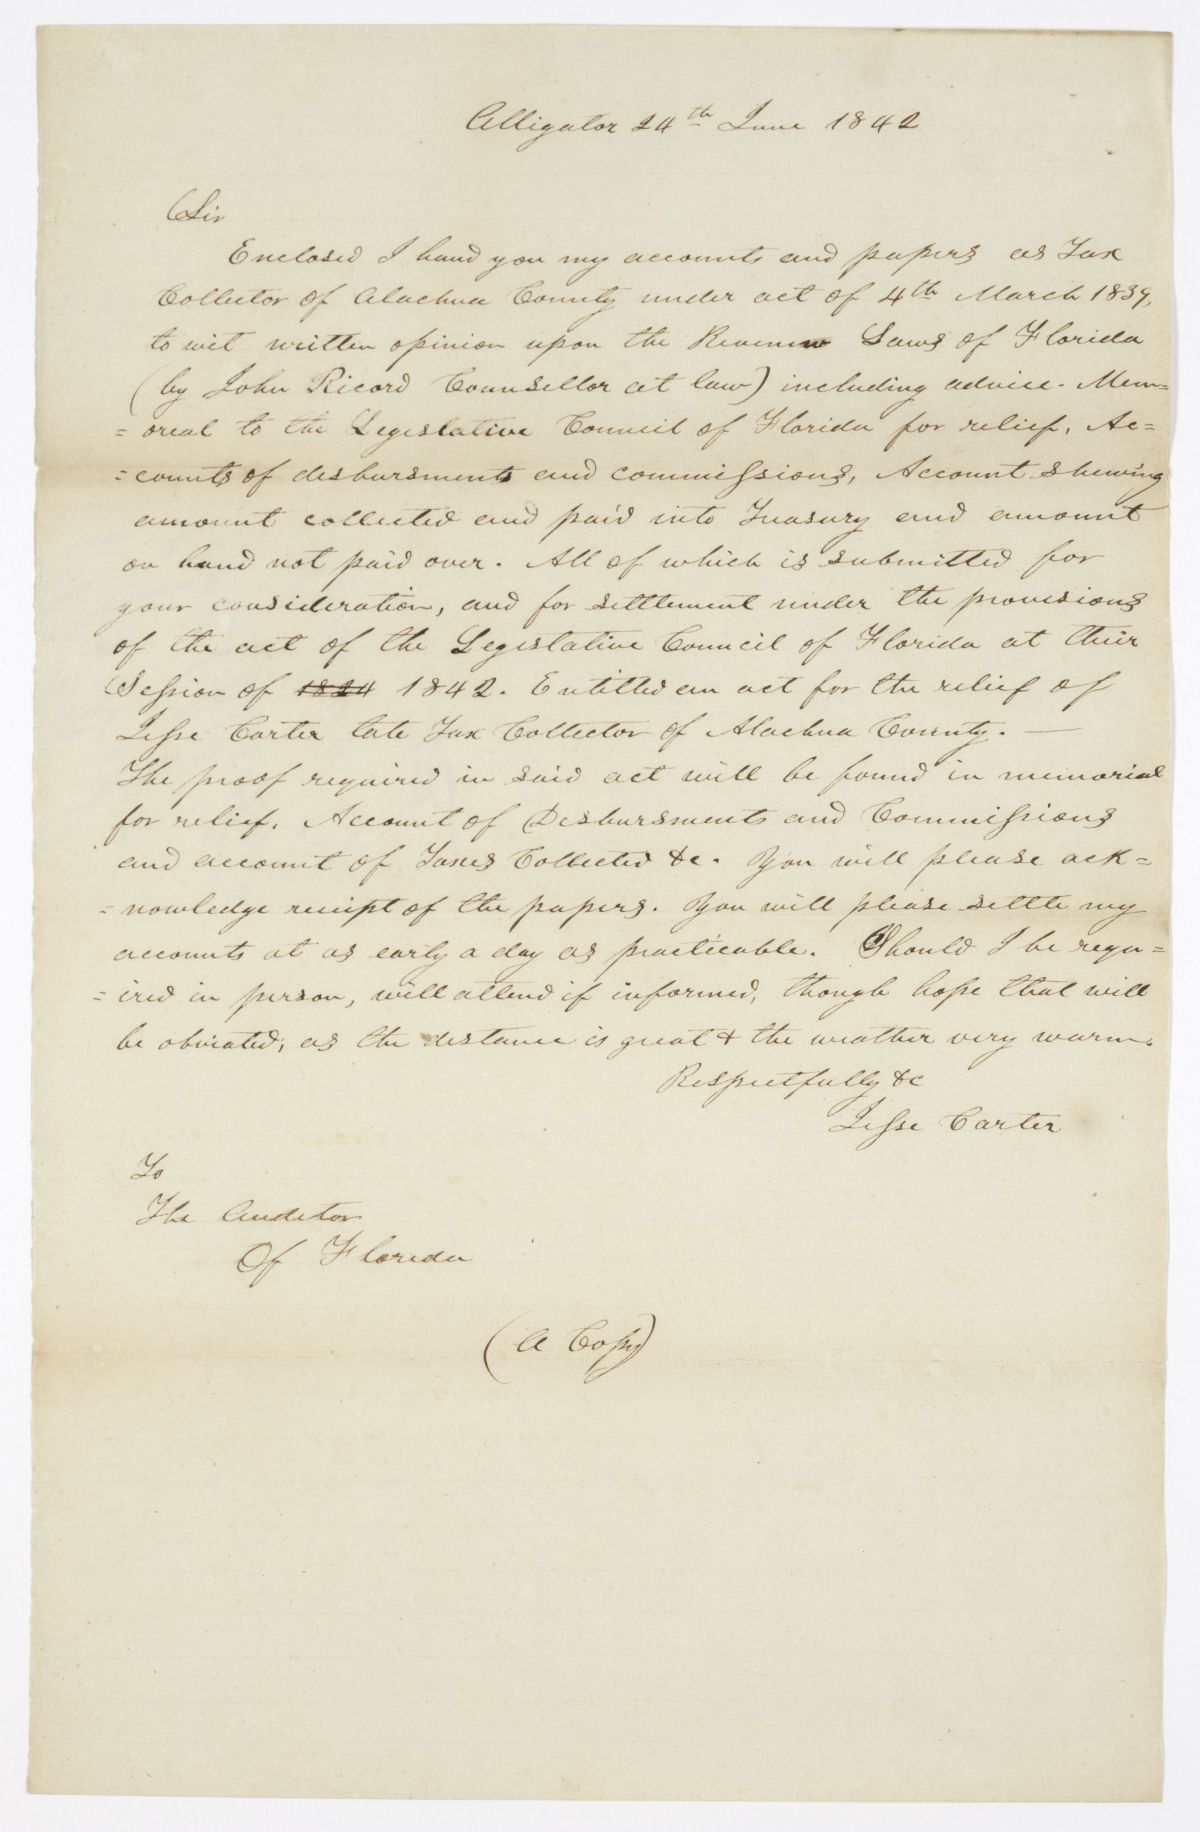 Alligator 24th June 1842
Sir
Enclosed I hand you my accounts and papers as Tax
Collector of Alachua County under act of 4th March 1839,
to wit written opinion upon the Revenue Laws of Florida
(by John Ricord Counsellor at law) including advice. Mem=
=oreal to the Legislative Council of Florida for relief, Ac=
=counts of desbursments and commissions, Account shewing
amount collected and paid into Treasury and amount
on hand not paid over. All of which is submitted for
your consideration, and for settlement under the provisions
of the act of the Legislative Council of Florida at their
Session of 1824 1842. Entitled an act for the relief of
Jesse Carter late Tax Collector of Alachua County. —
The proof required in said act will be found in memorial
for relief, Account of Desbursments and Commissions
and account of Taxes Collected &c. You will please ack=
=nowledge receipt of the papers. You will please settle my
accounts at as early a day as practicable. Should I be requ=
=ired in person, will attend if informed, though hope that will
be obviated, as the distance is great & the weather very warm.
Respectfully &c
Jesse Carter
To
The Auditor
Of Florida
(A Copy)